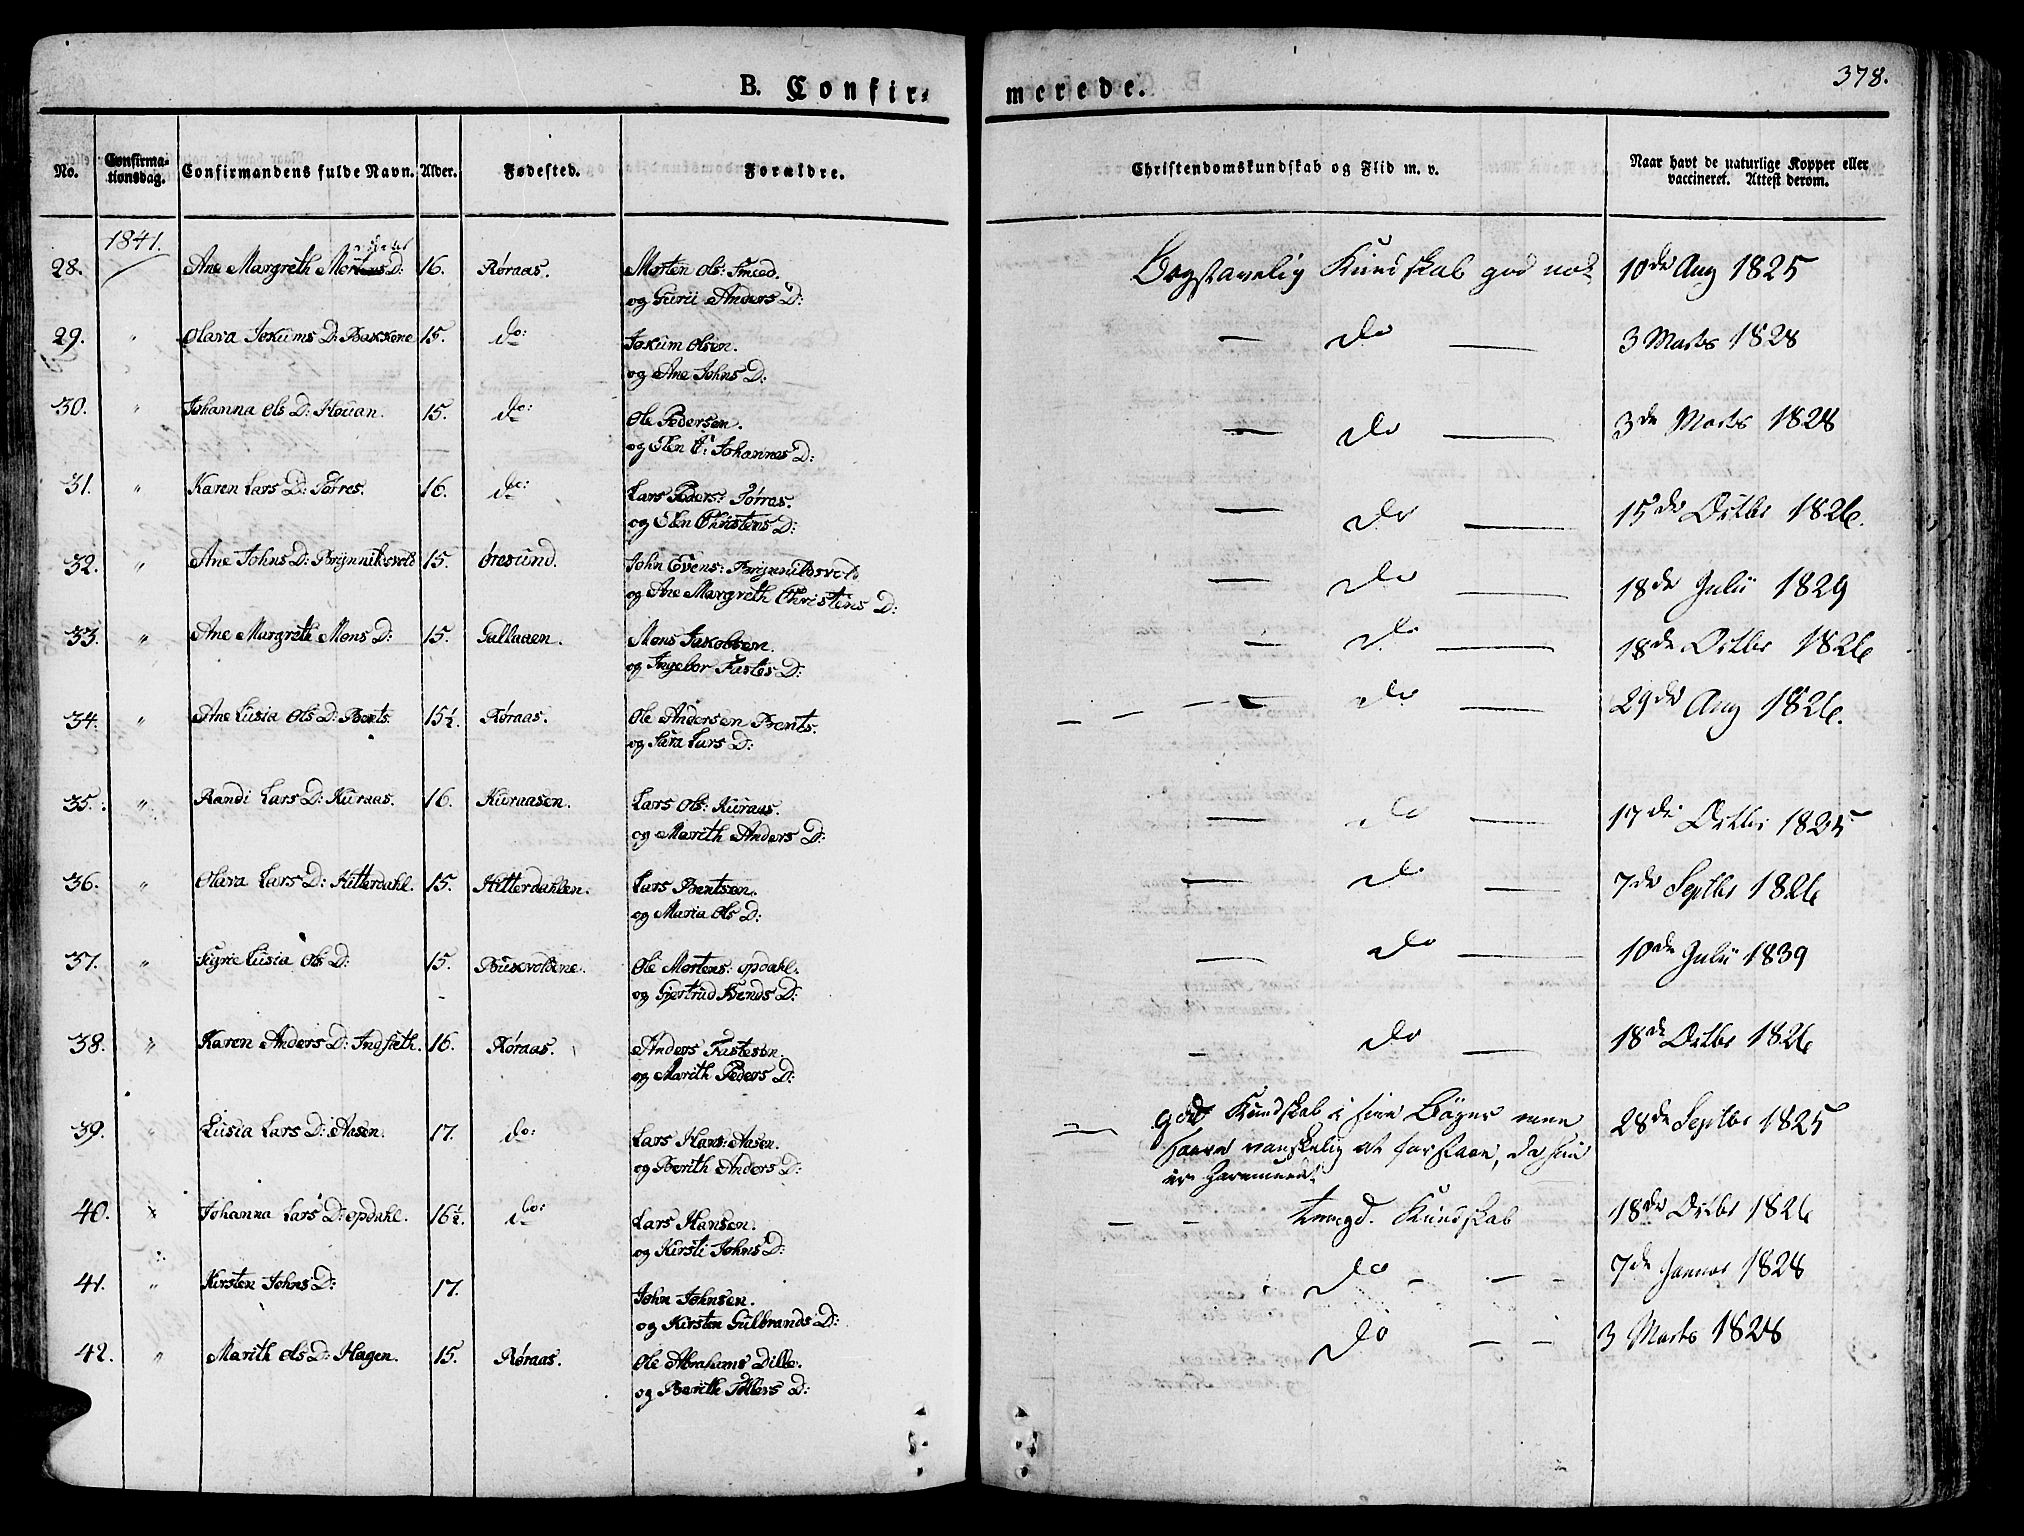 B. Confir-
merede.
378.
No.
Confirma-
tionsdag.
Confirmandens fulde Navn.
Alder.
Fødested.
Forældre.
Christendomskundskab og Flid m. v.
Naar havt de naturlige Kopper eller
vaccineret. Attest derom.
1841.
28. Ane Margreth D: 16. Røraas. Morten Ols: Smeed. Bogstavelig Kundskab god nok 10de Aug 1825
og Gurii Anders D:
29. " Olava Jokums D: Bakkene 15. do: Jokum Olsen. — do — 3 Marts 1828
og Ane Johns D:
30. " Johanna Ols D: Houan. 15. do: Ole Pedersen. — do — 3de Marts 1828
og Elen C: Johannes D:
31. " Karen Lars D: Tørres. 16. do: Lars Peders: Tørres. — do — 15de Octbr 1826.
og Elen Christens D:
32. " Ane Johns D: Brynnildsvold 15. Øresund. John Evens: Brynnildsvold — do — 18de Julii 1829
og Ane Margreth Christens D:
33. " Ane Margreth Mons D: 15. Gallaaen. Mons Jakobsen. — do — 18de Octbr 1826
og Ingebor Fastes D:
34. " Ane Lusia Ols D: Bents. 15½. Røraas. Ole Andersen Brents. — do — 29de Aug 1826.
og Sara Lars D:
35. " Randi Lars D: Kuraas. 16. Kuraasen. Lars Ols: Kuraas. — do — 17de Octbr 1825
og Marith Anders D:
36. " Olava Lars D: Hitterdahl. 15. Hitterdahlen. Lars Bentsen. — do — 7de Septbr 1826
og Maria Ols D:
37. " Sigrie Lusia Ols D: 15. Bukvoldene. Ole Mortens: Opdahl. — do — 10de Julii 1839
og Gjertrud Bends D:
38. " Karen Anders D: Indsæth. 16. Røraas. Anders Fastesen. — do — 18de Octbr 1826
og Marith Peders D:
39. " Lusia Lars D: Aasen. 17. do: Lars Hans: Aasen. god Kundskab i sine Bøger men 28de Septbr 1825
og Berith Anders D: vanskelig at forstaae, da hun
er
40. " Johanna Lars D: Opdahl. 16½. do: Lars Hansen. — — Kundskab 18de Octbr 1826
og Kirsti Johns D:
41. " Kirsten Johns D: 17. John Johnsen. do — — 7de Januar 1828
og Kirsten Gulbrands D:
42. " Marith Ols D: Hagen. 15. Røraas. Ole Abrahams Dille. do — — 3 Marts 1828
og Berith Tollers D: